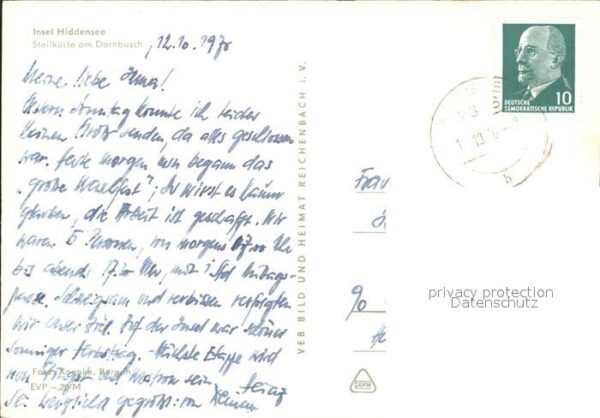 Insel Hiddensee
Steilküste am Dornbusch
12.10.1970
Meine liebe
Gestern Sonntag konnte ich leider
keinen Gruß senden, da alles geschlossen
war. Heute morgen nun begann das
"große Waschfest"; Du wirst es kaum
glauben, die Arbeit ist geschafft. Wir
waren 5 Personen, von morgens 07.00 Uhr
bis abends 17.00 Uhr, mit 1 Std Mittags-
pause. Schweigsam und verbissen verfolgten
wir unser Ziel. Auf der Insel war schöner
sonniger Herbsttag. - Nächste Etappe wird
nun und sein
Sei herzlichst gegrüßt von
Foto: Bergen
EVP -,20 M
VEB BILD UND HEIMAT REICHENBACH I. V.
DEUTSCHE
DEMOKRATISCHE REPUBLIK
10
Frau
privacy protection
Datenschutz